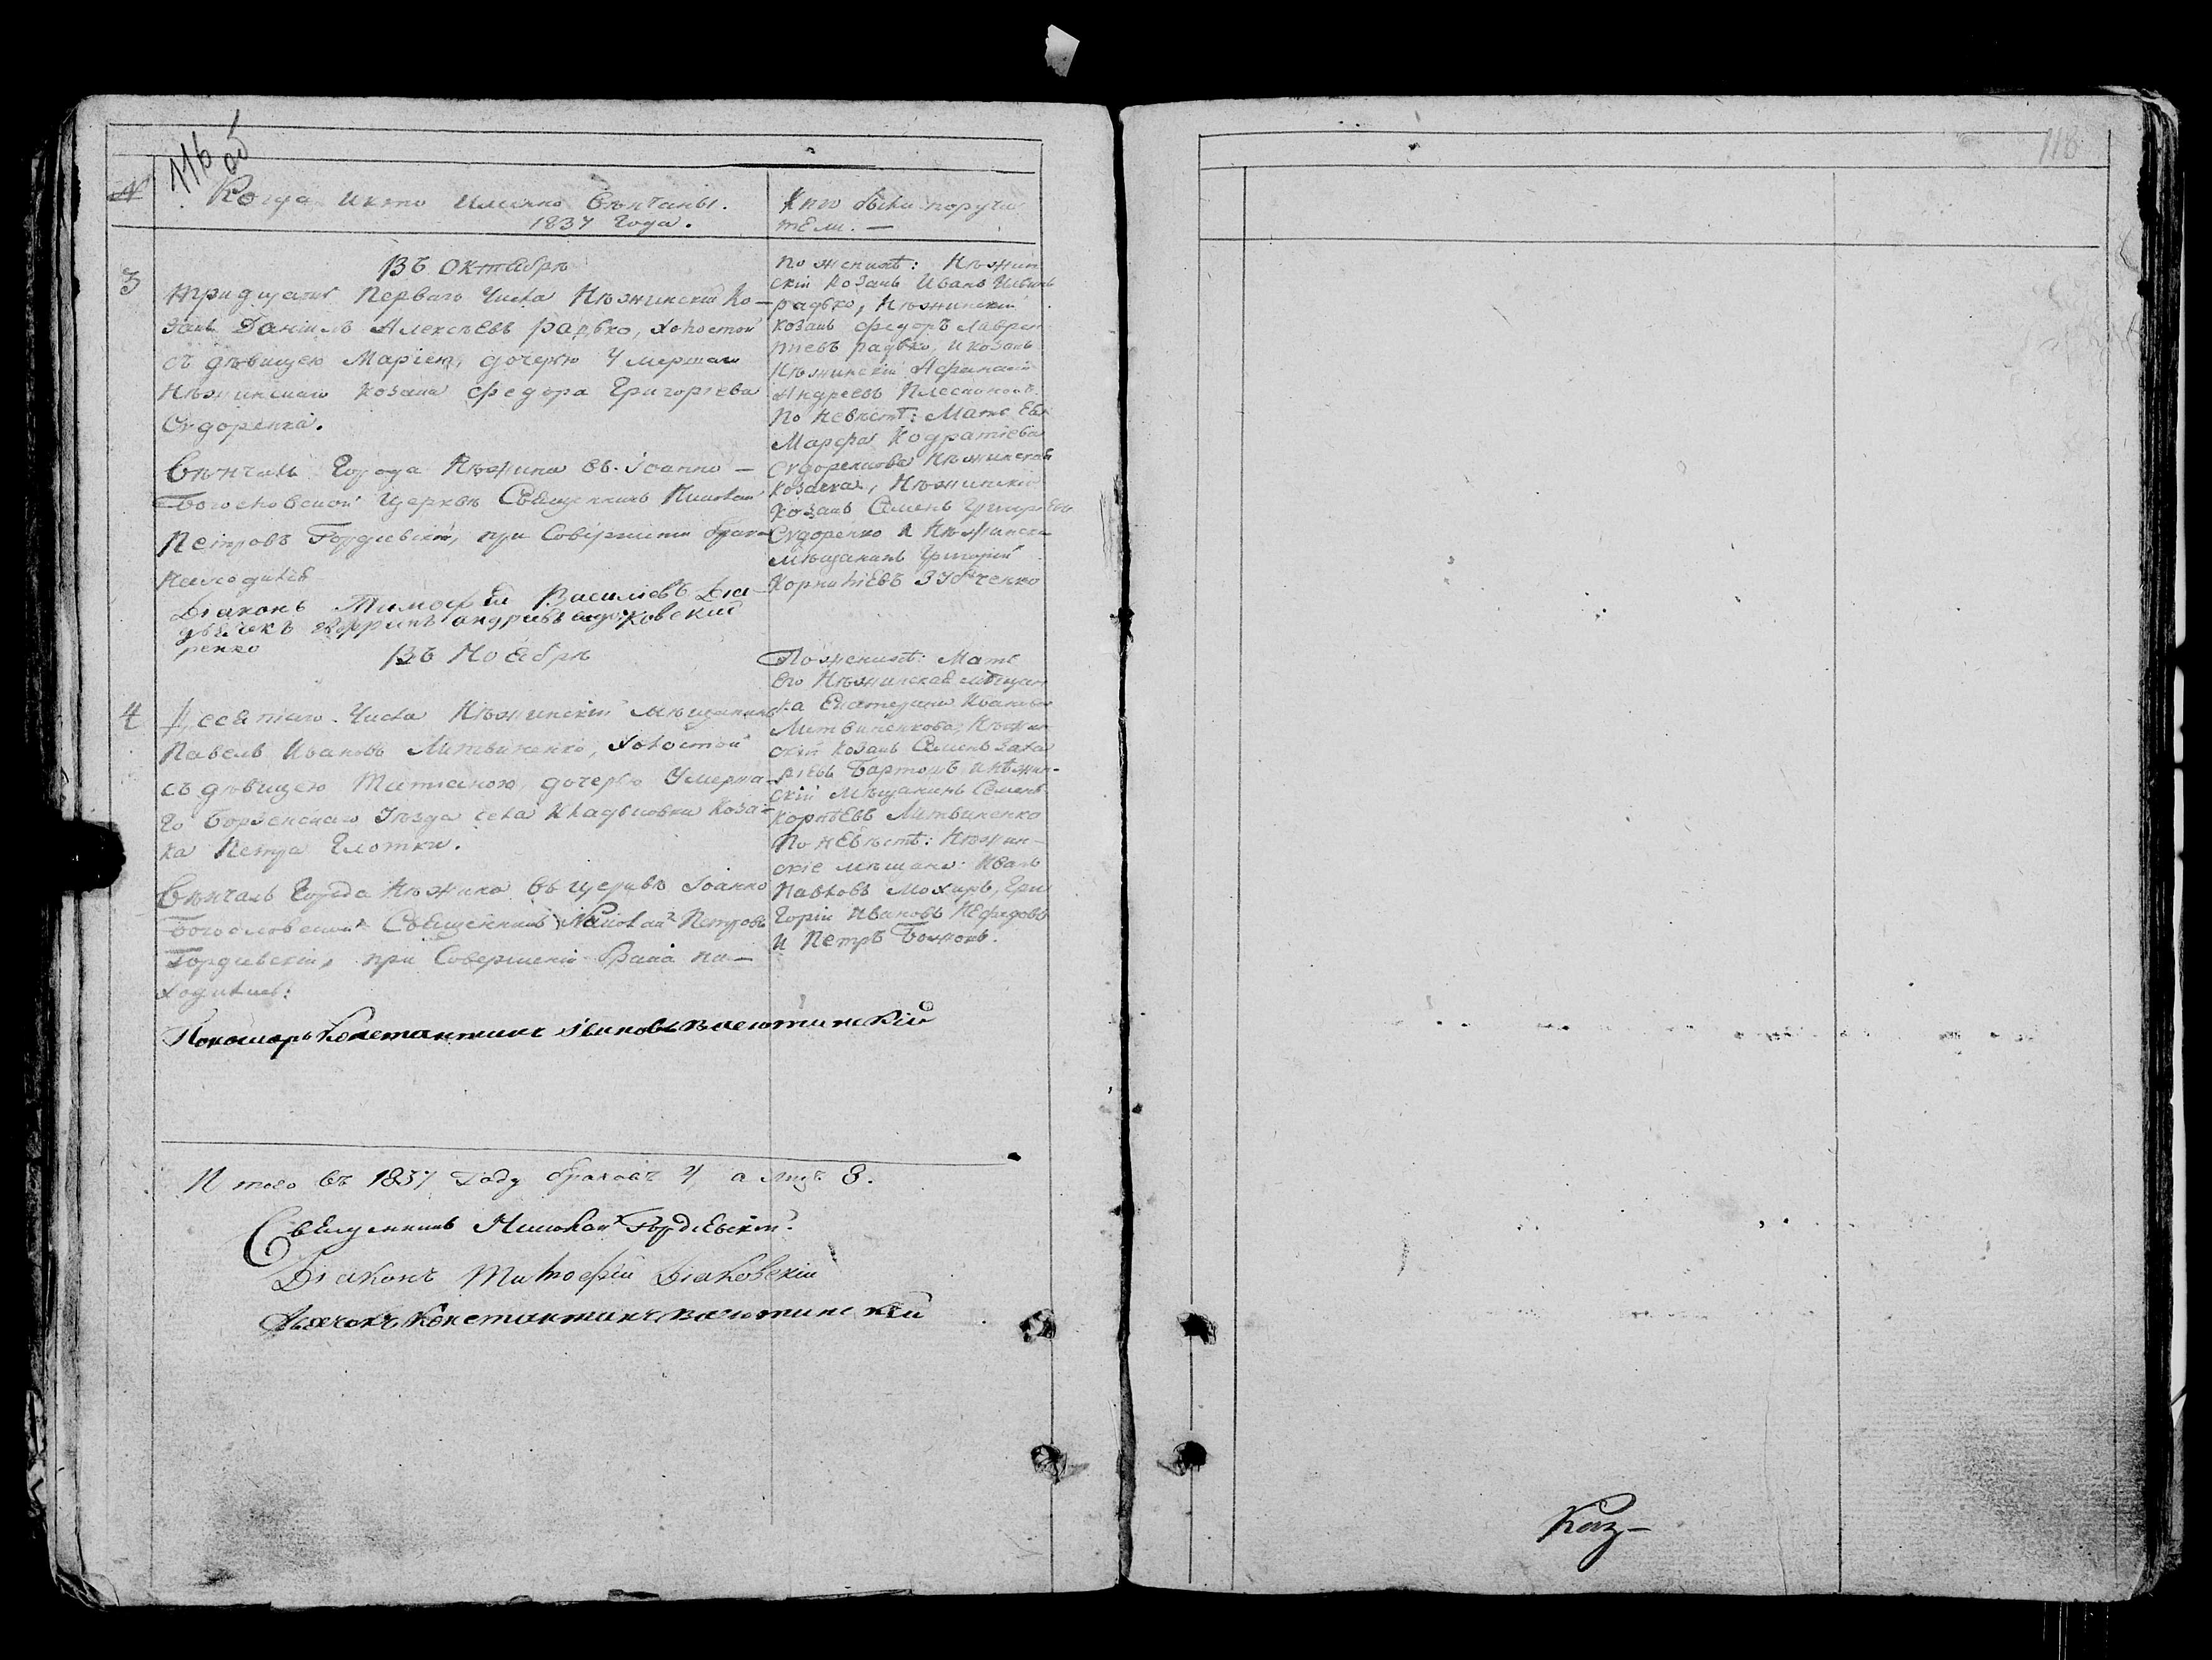 116 об
118
№
Когда и кто именно Венчаны.
1837 Года.
Кто были поручи
тели. —
3
Въ Октябрѣ
тридцать Перваго Числа Нѣжинскій Ко-
закъ Даніилъ Алексѣевъ радько, холостой
съ дѣвицею Маріею, дочерью Умершаго
Нѣжинскаго козака Федора Григоріева
Сидоренка.
Вѣнчалъ Города Нѣжина св. Іоанно —
Богословской Церквѣ Священникъ Николай
Петровъ Гордіевскій, при Совершеніи брака
Находились
Діаконъ Тимофей Василіевъ Діа
ковскій
ренко
По женихѣ: Нѣжин
скій козакъ Иванъ
радько, Нѣжинскій
козакъ Федоръ Лаврен
тіевъ радько, и козакъ
Нѣжинскій Афанасій
Андреевъ
По невѣстѣ: Мать Ея
Марфа Кодратіева
Сидоренкова Нѣжинская
козачка, Нѣжинскій
козакъ Семенъ Григоріевъ
Сидоренко и Нѣжинскій
мѣщанинъ Григорій
Корниліевъ Зубченко
Въ Ноябрѣ
4
Десятаго Числа Нѣжинскій мѣщанинъ
Павелъ Ивановъ Литвиненко, холостой
съ дѣвицею Татіаною, дочерью Умерша-
го Борзенскаго Уѣзда села Кладьковки Коза-
ка Петра Глотки.
Вѣнчалъ Города Нѣжина въ Церквѣ Іоанно
Богословской Священникъ Николай Петровъ
Гордіевскій, при Совершеніи Брака на—
ходились:
Пономарь Константинъ
По женихѣ: Мать
его Нѣжинская мѣщан
ка Екатерина Иванова
Литвиненкова, Нѣжин
скій козакъ Семенъ Заха
ріевъ Бартошъ, и Нѣжин-
скій Мѣщанинъ Семенъ
Корнѣевъ Литвиненко
По невѣстѣ: Нѣжин—
скіе мѣщане: Иванъ
Павловъ Мохиръ, Гри
горій Ивановъ Нефедовъ
и Петръ Божокъ.
Итого въ 1837 Году браковъ 4 а лицъ 8.
Священникъ Николай Гордіевскій.
Діаконъ Тимофій Діаковскій
Дьячокъ Константинъ
Каз—